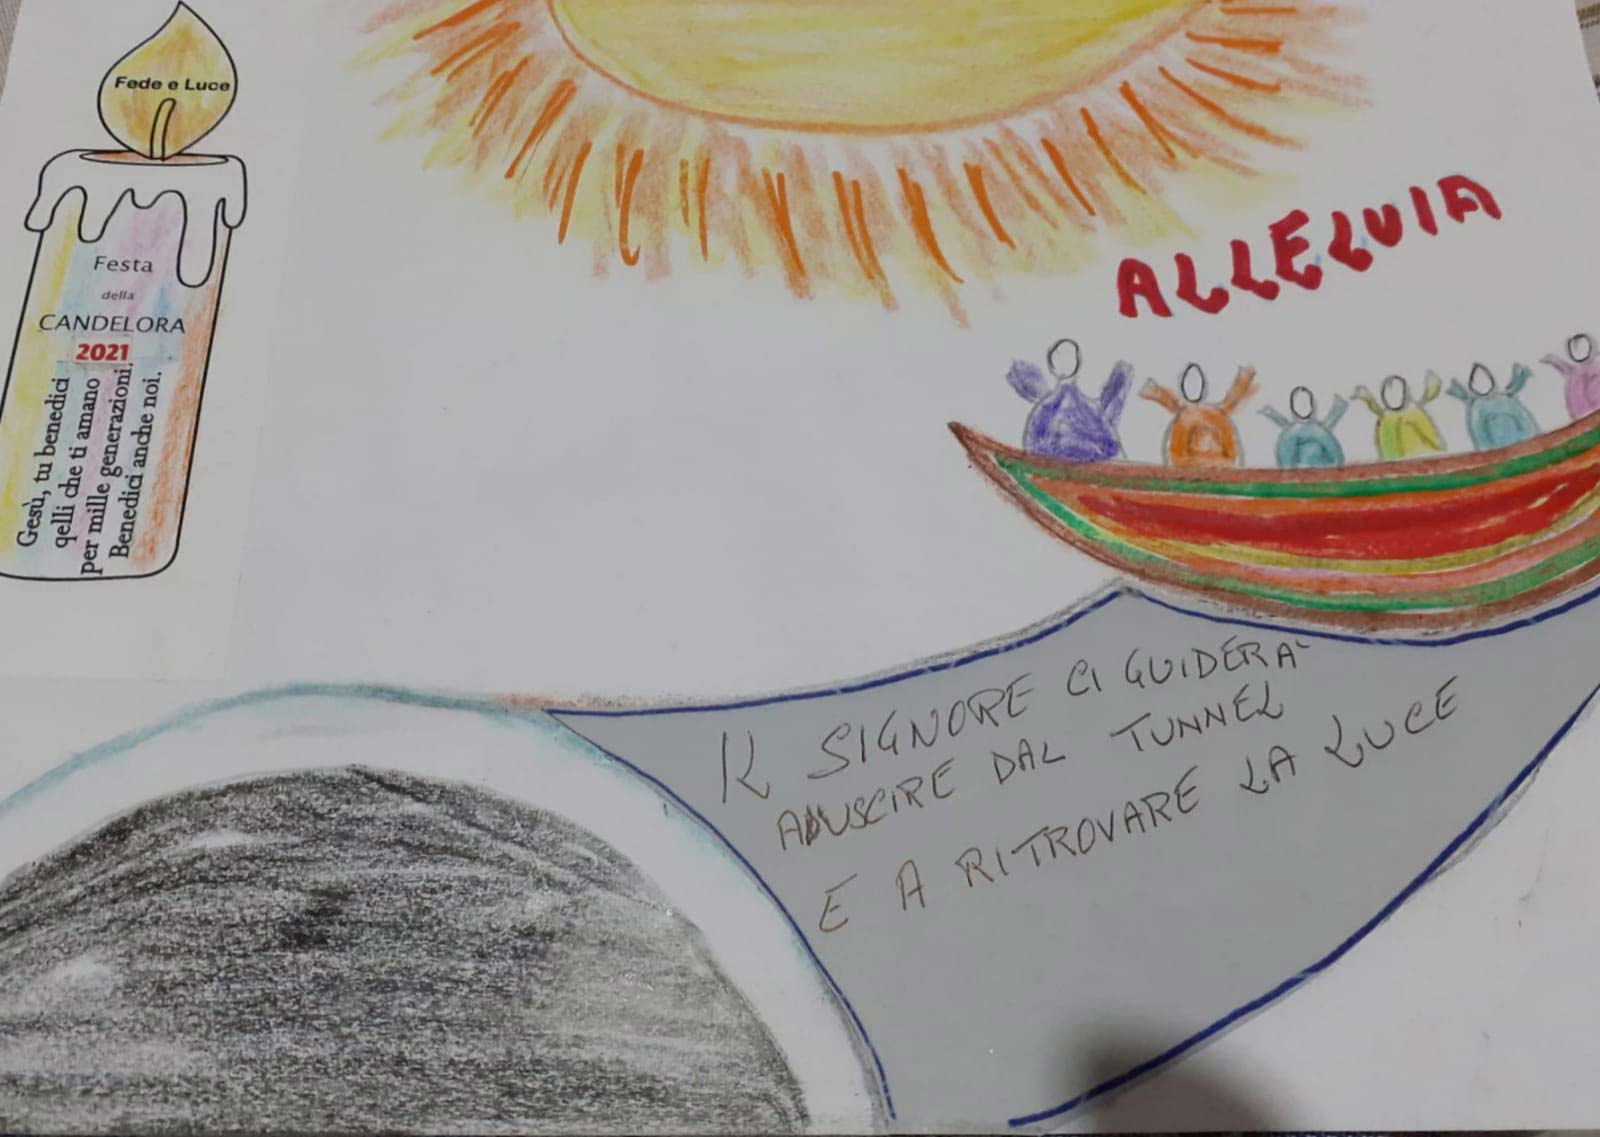 Fede e Luce
Festa
della
CANDELORA
2021
Gesù, tu benedici
qelli che ti amano
per mille generazioni.
Benedici anche noi.
ALLELUIA
IL SIGNORE CI GUIDERA'
AD USCIRE DAL TUNNEL
E A RITROVARE LA LUCE